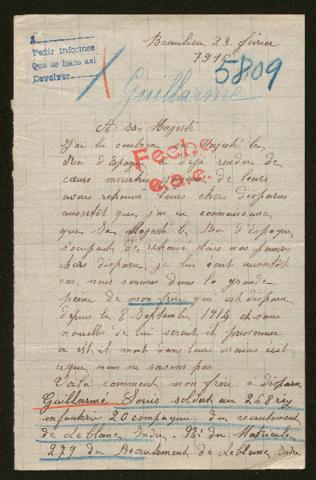 A
Pedir informes
Que se hace asi
Devolver
Beaulieu 23 février
1915
5809
Guillarme
A Sa Majesté
J'ai lu combien sa Majesté le
Roi d'Espagne a déjà rendu de
cœurs meurtris de leurs
retrouvé leurs chers disparus
aussitôt que j'ai eu connaissance
que Sa Majesté le Roi d'Espagne,
s'occupait de retrouvé dans nos pauvres
chers disparu je lui écrit aussitôt
car nous sommes dans la grande
peine de mon frère qui est disparu
depuis le 8 Septembre 1914 et sans
nouvelle de lui serait il prisonnier
où est il mort dans leurs mains c'est
ce que nous ne savons pas
Voilà comment mon frère a disparu
Guillarmé Louis soldat au 268 Reg
infanterie 20 compagnie du recrutement
de Leblanc Indre. No du Matricule
279 du Recrutement de Leblanc Indre
Fecha
c.a.e.